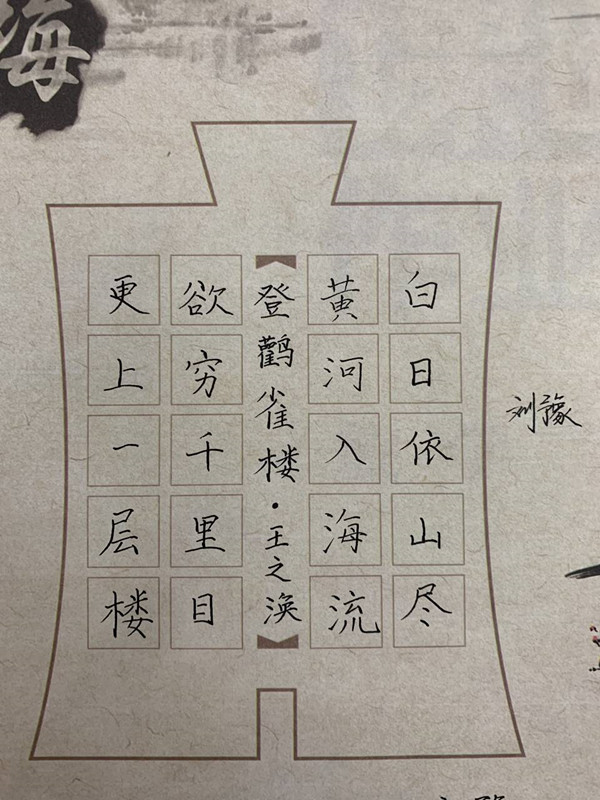 海
白日依山尽
黄河入海流
登鹳雀楼·王之涣
欲穷千里目
更上一层楼
刘豫